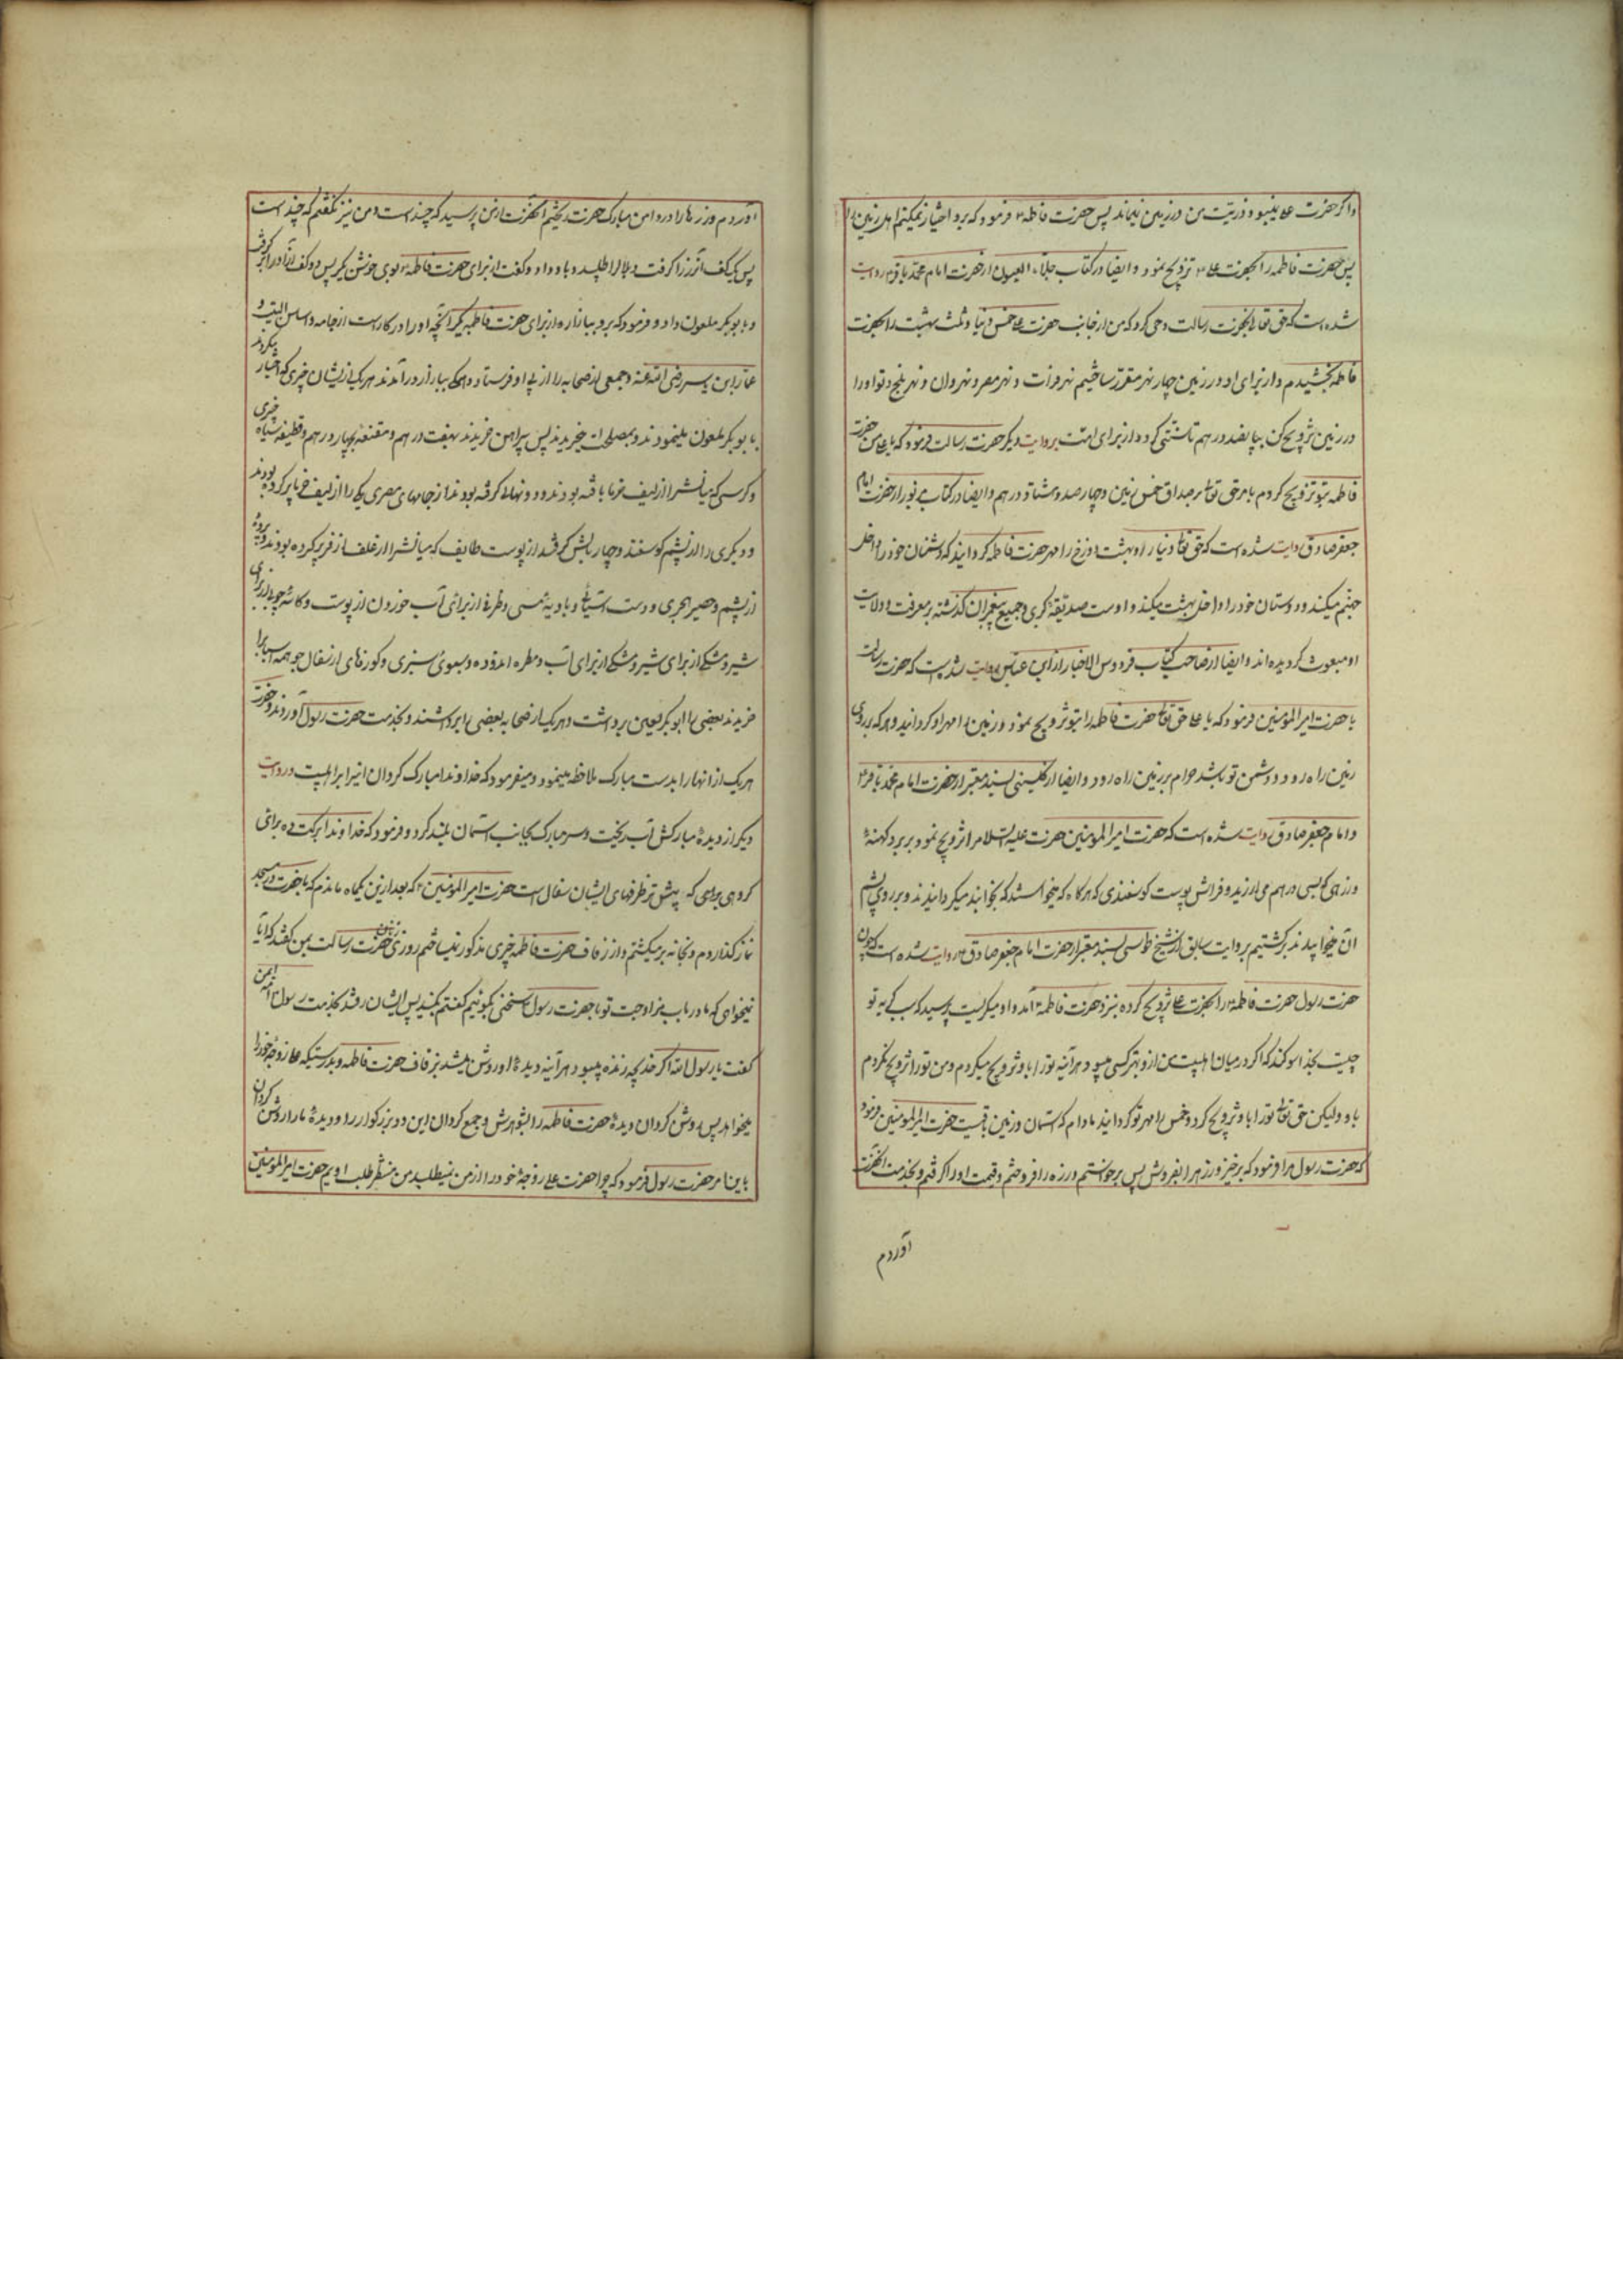 و اگر حضرت علی نمیبود ذریّت من در زمین نمیماند پس حضرت فاطمه فرمود که برو اختیار نمیکنم اهل زمین را
پس حضرت فاطمه را بحضرت علی تزویج نمود و ایضا در کتاب جلاء العیون از حضرت امام محمد باقر روایت
شده است که حق تعالی بحضرت رسالت وحی کرد که من از جانب حضرت علی خمس دنیا و ثلث بهشت را بحضرت
فاطمه بخشیدم و از برای او در زمین چهار نهر مقرّر ساختیم نهر فرات و نهر مصر و نهروان و نهر بلخ و تو او را
در زمین تزویج کن بپانصد درهم تا سنّتی گردد از برای امّت بروایت دیگر حضرت رسالت فرمود که یا علی من حضرت
فاطمه بتو تزویج کردم بامر حق تعالی بر صداق خمس زمین و چهارصد و هشتاد درهم و ایضا در کتاب مزبور از حضرت امام
جعفر صادق روایت شده است که حق تعالی دنیا را و بهشت و دوزخ را مهر حضرت فاطمه گردانید که دشمنان خود را داخل
جهنّم میکند و دوستان خود را داخل بهشت میکند و اوست صدیقهٔ کبری و جمیع پیغمبران گذشته بمعرفت و ولایت
او مبعوث گردیده اند و ایضا از صاحب کتاب فردوس الاخبار از ابن عباس روایت شده است که حضرت رسالت
با حضرت امیر المؤمنین فرمود که یا علی حق تعالی حضرت فاطمه را بتو تزویج نمود و زمین را مهر او گردانید و هر که بر روی
زمین راه رود و دشمن تو باشد حرام بر زمین راه رود و ایضا از کلینی بسند معتبر از حضرت امام محمد باقر
و امام جعفر صادق روایت شده است که حضرت امیر المؤمنین حضرت علیه السلام را تزویج نمود بر برد کهنهٔ
و زرهی که بسی درهم می ارزید و فراش پوست کوسفندی که هر گاه که میخواستند که بخوابند میگردانیدند و بر روی پشم
آن میخوابیدند برگشتیم بروایت سابق از شیخ طوسی بسند معتبر از حضرت امام جعفر صادق روایت شده است که چون
حضرت رسول حضرت فاطمه را بحضرت علی تزویج کرده بنزد حضرت فاطمه آمد و او میگریست پرسید که سبب گریه تو
چیست بخدا سوگند که اگر در میان اهلبیت من ازو بهتر کسی میبود هر آینه تو را باو تزویج میکردم و من تو را تزویج نکردم
باو ولیکن حق تعالی تو را باو تزویج کرد و خمس را مهر تو گردانید مادام که آسمان و زمین باقیست حضرت امیر المؤمنین فرمود
که حضرت رسول مرا فرمود که برخیز و زره را بفروش پس برخواستم و زره را فروختم و قیمت او را گرفتم و بخدمت آنحضرت
آوردم
آوردم و زرها را در دامن مبارک حضرت ریختم آنحضرت از من پرسید که چند است و من نیز نگفتم که چند است
پس یک کف از زر را گرفت و بلال را طلبید و باو داد و گفت از برای حضرت فاطمه بوی خوش بگیر پس دو کف از آن زر را برگرفت
و بابوبکر ملعون داد و فرمود که برو ببازار و از برای حضرت فاطمه بگیر آنچه او را در کار است از جامه و اساس البیت و
عمّار ابن یاسر رضی الله عنه و جمعی از صحابه را از پی او فرستاد و همگی ببازار درآمدند هر یک از ایشان چیزی که اختیار میکردند
بابوبکر ملعون مینمودند و بمصلحت میخریدند پس پیراهن خریدند بهفت درهم و مقنعه بچهار درهم و قطیفه سیاه خیبری
و کرسی که میانشرا از لیف خرما بافته بودند و دو نهالی گرفته بودند از جامهای مصری یکی را از لیف خرما پر کرده بودند
و دیگری را از پشم کوسفند و چهار بالش گرفتند از پوست طایف که میانشرا از علف اذخر پر کرده بودند و پردهٔ
از پشم و حصیر هجری و دست آسیائی و بادیهٔ مسی و ظرفی از برای آب خوردن از پوست و کاسهٔ چوبی از برای
شیر و مشکی از برای شیر و مشکی از برای آب و مطره اندوده و سبوی سبزی و کوزهای از سفال چو همه اسبابرا
خریدند بعضی را ابوبکر لعین برداشت و هر یک از صحابه بعضی را برداشتند و بخدمت حضرت رسول آوردند و حضرت
هر یک از آنها را بدست مبارک ملاحظه مینمود و میفرمود که خداوندا مبارک گردان اینرا بر اهلبیت در روایت
دیگر از دیدهٔ مبارکش آب ریخت و سر مبارک بجانب آسمان بلند کرد و فرمود که خداوندا برکت ده برای
گروهی که بیشتر ظرفهای ایشان سفال است حضرت امیر المؤمنین که بعد ازین یکماه ماندم که با حضرت در مسجد
نماز گذاردم و بخانه برمیگشتم و از زفاف حضرت فاطمه چیزی مذکور نمیساختم روزی زنان حضرت رسالت بمن گفتند که آیا
نمیخواهی که ما در باب مزاوجت تو با حضرت رسول سخنی بگوئیم گفتم بگوئید پس ایشان رفتند بخدمت رسول امّ ایمن
گفت یا رسول الله اگر خدیجه زنده میبود هر آینه دیدهٔ او روشن میشد بزفاف حضرت فاطمه و بدرستیکه علی زوجهٔ خود را
میخواهد پس روشن گردان دیدهٔ حضرت فاطمه را بشوهرش و جمع گردان این دو بزرگوار را و دیدهٔ ما را روشن گردان
باینامر حضرت رسول فرمود که چرا حضرت علی زوجهٔ خود را از من نمیطلبد من منتظر طلب اویم حضرت امیر المؤمنین